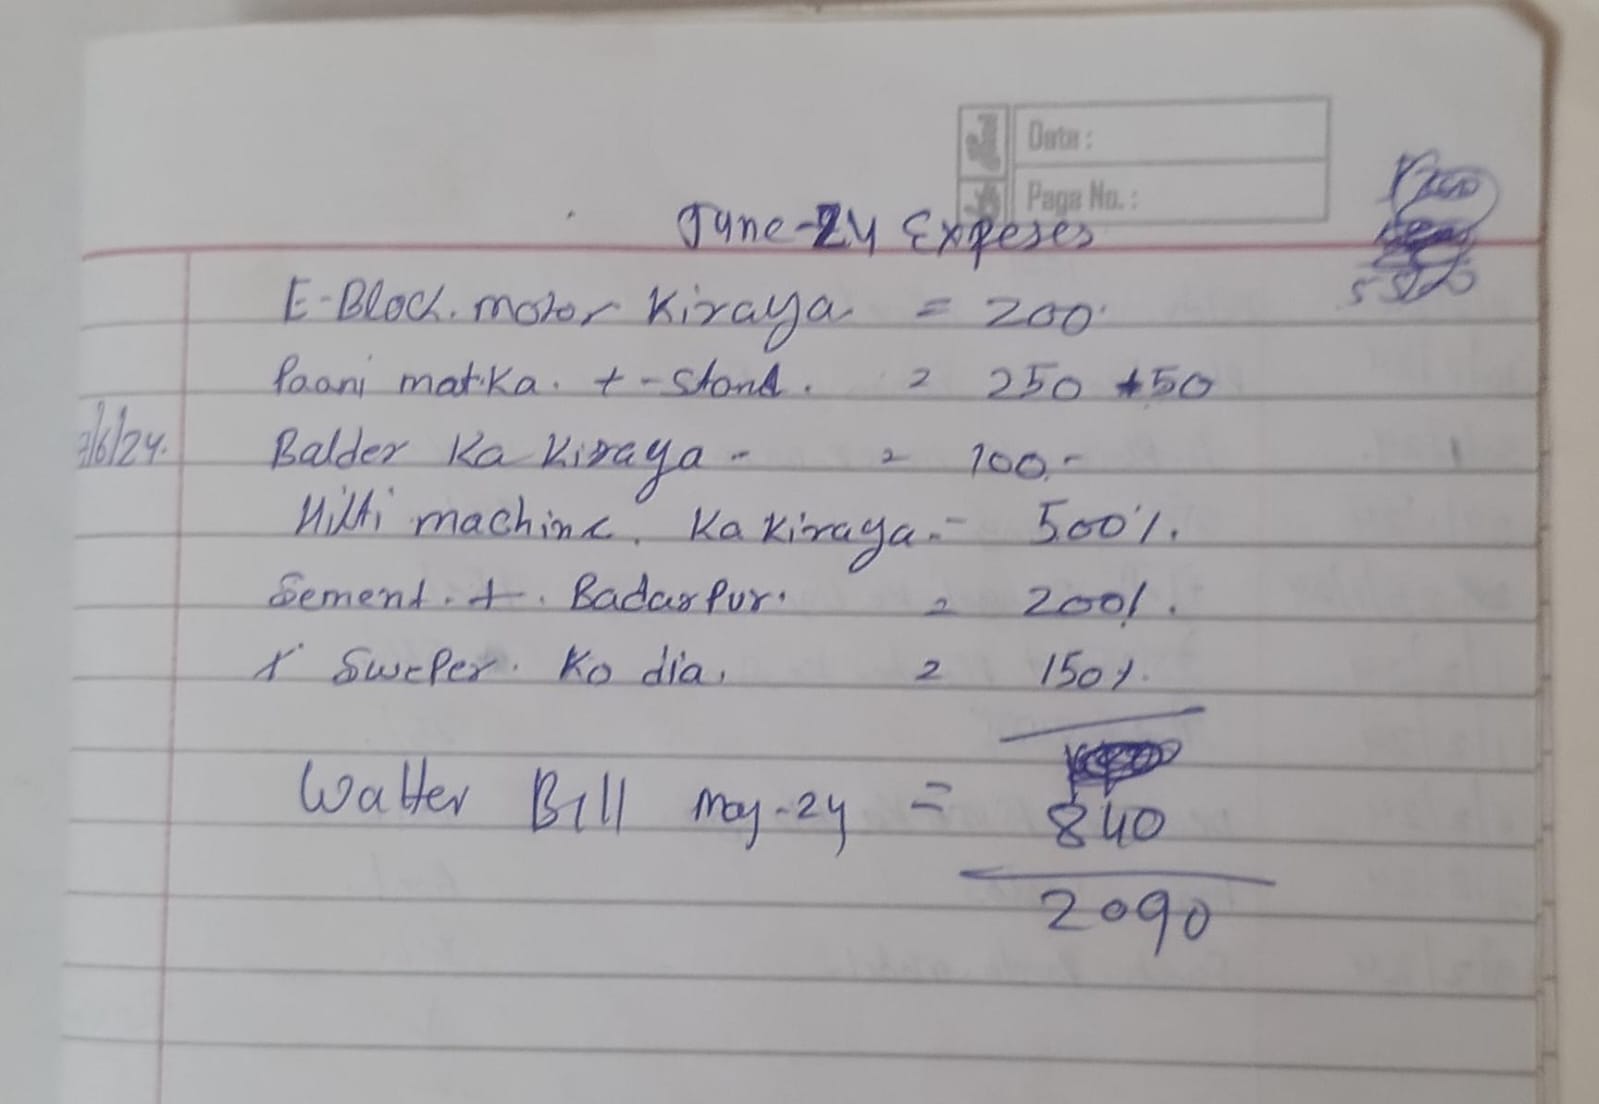 Date :
Page No. :
June-24 Expeses
E-Block. motor Kiraya = 200
Paani matka. + - Stand. = 250 +50
/6/24. Balder Ka Kiraya - = 100.-
Hilti machine. Ka Kiraya. = 500/.
Sement. +. Badarpur. = 200/.
Sweper. Ko dia. = 150/.
Watter Bill May-24 = 840
2090